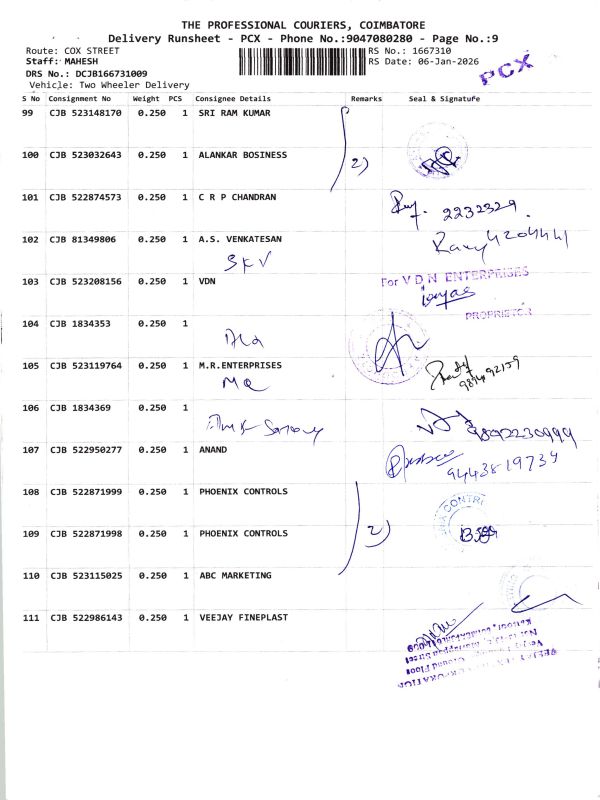 THE PROFESSIONAL COURIERS, COIMBATORE
Delivery Runsheet - PCX - Phone No.:9047080280 - Page No.:9
Route: COX STREET
RS No.: 1667310
Staff: MAHESH
RS Date: 06-Jan-2026
PCX
DRS No.: DCJB166731009
Vehicle: Two Wheeler Delivery
S No Consignment No Weight PCS Consignee Details Remarks Seal & Signature
99 CJB 523148170 0.250 1 SRI RAM KUMAR
100 CJB 523032643 0.250 1 ALANKAR BOSINESS
2)
101 CJB 522874573 0.250 1 C R P CHANDRAN
2232329
102 CJB 81349806 0.250 1 A.S. VENKATESAN
SKV
4204441
103 CJB 523208156 0.250 1 VDN
For V D N ENTERPRISES
PROPRIETOR
104 CJB 1834353 0.250 1
105 CJB 523119764 0.250 1 M.R.ENTERPRISES
106 CJB 1834369 0.250 1
107 CJB 522950277 0.250 1 ANAND
9443819734
108 CJB 522871999 0.250 1 PHOENIX CONTROLS
109 CJB 522871998 0.250 1 PHOENIX CONTROLS
2)
110 CJB 523115025 0.250 1 ABC MARKETING
111 CJB 522986143 0.250 1 VEEJAY FINEPLAST